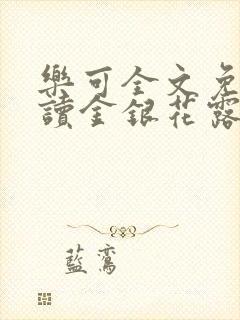 樂可全文免
讀金銀花露
藍鸞